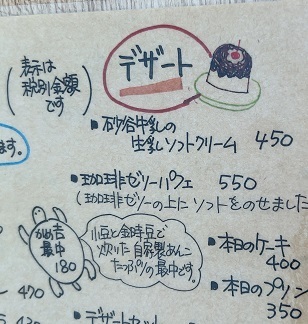 (表示は
税別金額
です)
デザート
■ 砂谷牛乳の
生乳ソフトクリーム 450
ます。
■ 珈琲ゼリーパフェ 550
(珈琲ゼリーの上にソフトをのせました
かめ吉
最中
180
小豆と金時豆で
炊いた自家製あんこ
たっぷりの最中です。
■ 本日のケーキ
400
■ 本日のプリン
350
470
■ デザートセット